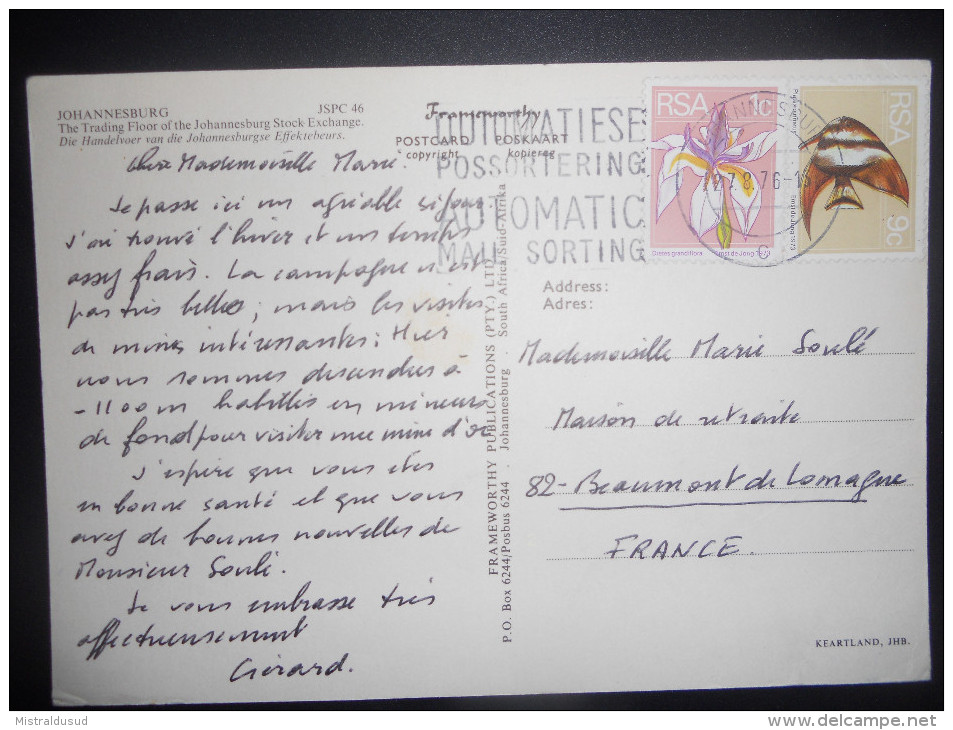 JOHANNESBURG JSPC 46
The Trading Floor of the Johannesburg Stock Exchange.
Die Handelvoer van die Johannesburgse Effektebeurs.
Chère Mademoiselle Marie.
Je passe ici un agréable séjour.
J'ai trouvé l'hiver et un temps
assez frais. La campagne n'est
pas très belle ; mais les visites
de mines intéressantes : Hier
nous sommes descendus à
-1100m habillés en mineurs
de fond pour visiter une mine d'or
J'espère que vous êtes
en bonne santé et que vous
avez de bonnes nouvelles de
Monsieur Soulé.
Je vous embrasse très
affectueusement
Gérard.
Frameworthy
POSTCARD POSKAART
copyright kopiereg
OUTOMATIESE
POSSORTERING
AUTOMATIC
MAIL SORTING
FRAMEWORTHY PUBLICATIONS (PTY.) LTD.
P.O. Box 6244/Posbus 6244 . Johannesburg . South Africa/Suid-Afrika
RSA 1c
Dietes grandiflora Ernst de Jong 1973
RSA 9c
Ernst de Jong 1973
27.8.76-15
C
Address:
Adres:
Mademoiselle Marie Soulé
Maison de retraite
82-Beaumont de Lomagne
FRANCE.
KEARTLAND, JHB.
Mistraldusud
delcampe.net